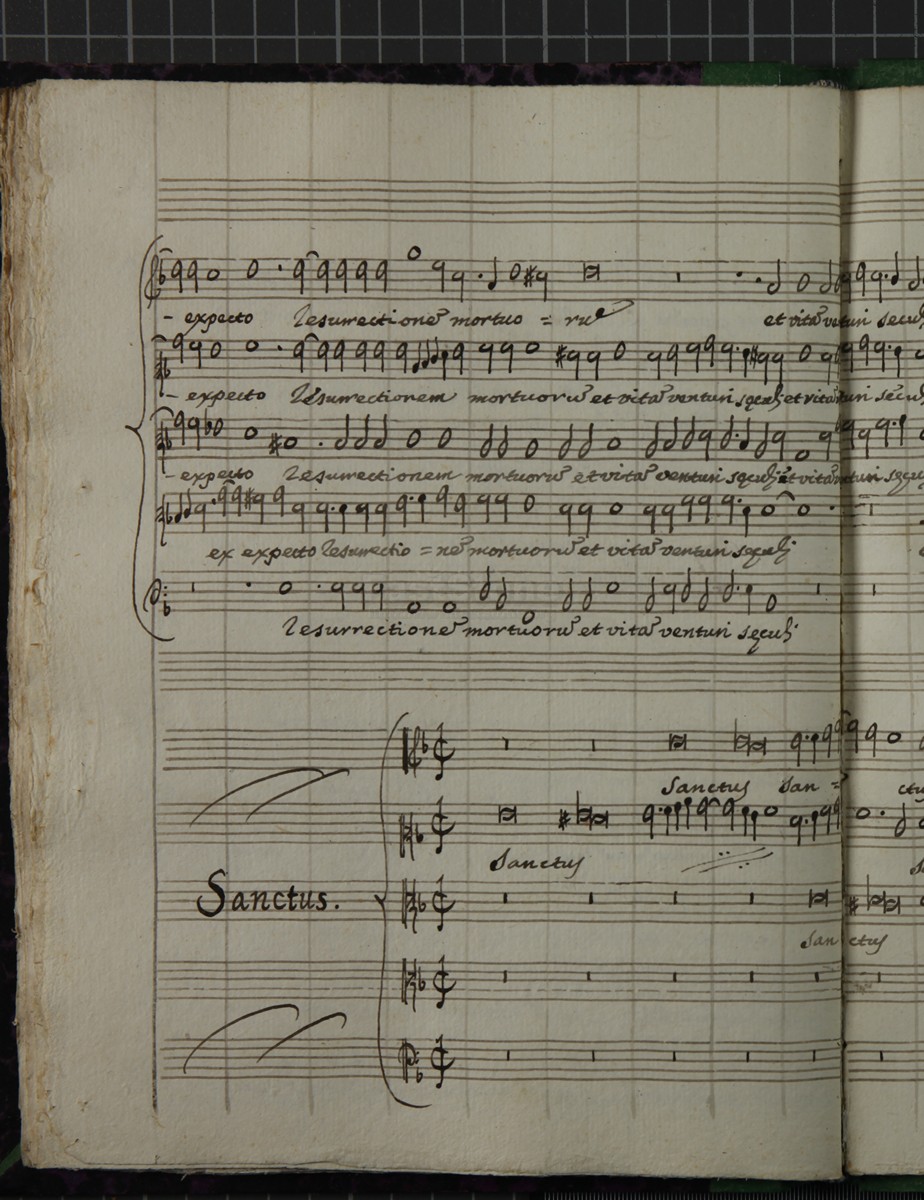 - expecto Resurrectionẽ mortuo = rũ et vitã venturi seculj
- expecto Resurrectionem mortuorũ et vitã venturi seculj et vitã venturi seculj
- expecto Resurrectionem mortuorũ et vitã venturi seculj et vitã venturi seculj
ex expecto Resurrectio = nẽ mortuorũ et vitã venturi seculj
Resurrectionẽ mortuorũ et vitã venturi seculj
Sanctus San = ctu
Sanctus
Sanctus.
Sanctus